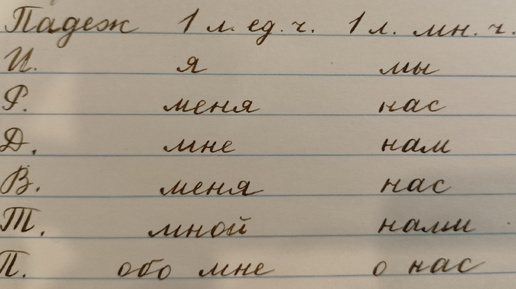 Падеж 1 л. ед. ч. 1 л. мн. ч.
И. я мы
Р. меня нас
Д. мне нам
В. меня нас
Т. мной нами
П. обо мне о нас